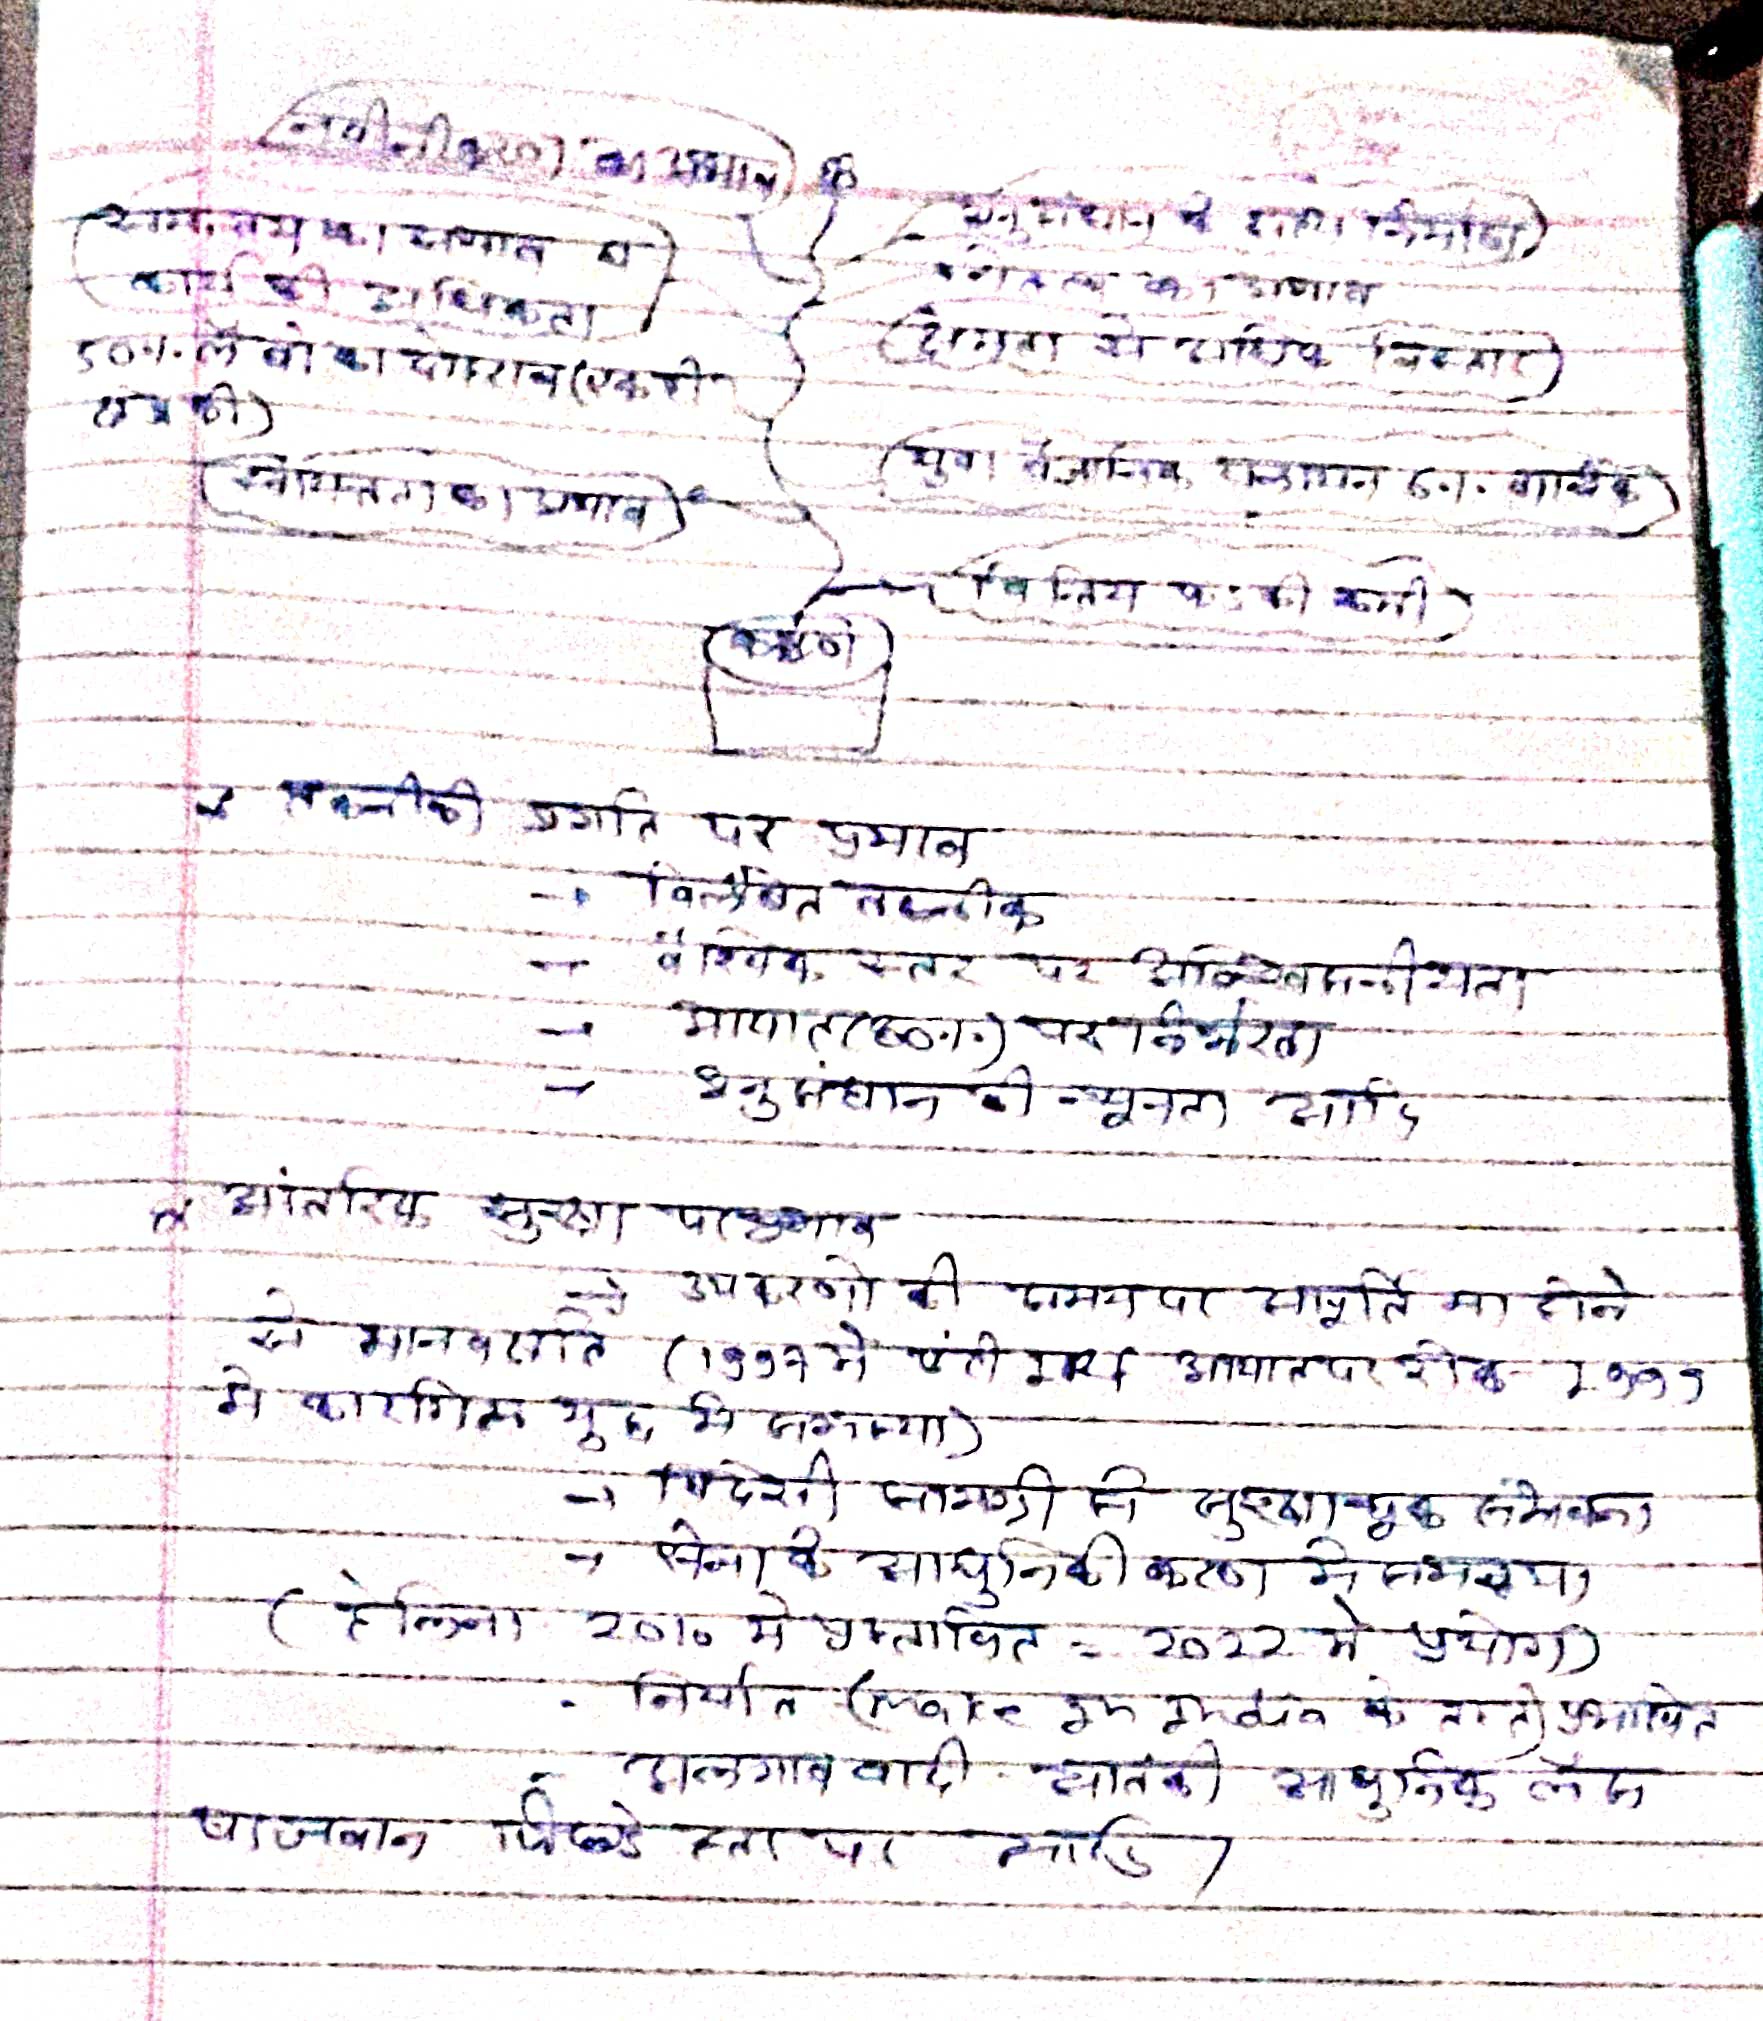 नवीनीकरण का अभाव
समन्वय का अभाव व
कार्य की अधिकता
50% लैबो का दोहराव (एक ही
क्षेत्र की)
स्वायत्तता का अभाव
अनुसंधान के साथ निर्माण
नेतृत्व का अभाव
क्षमता से अधिक विस्तार
युवा वैज्ञानिक पलायन 6% वार्षिक
वित्तिय फंड की कमी
कारण
तकनीकी प्रगति पर प्रभाव
→ विलंबित तकनीक
→ वैश्विक स्तर पर अविश्वसनीयता
→ आयात (60%) पर निर्भरता
→ अनुसंधान की न्यूनता आदि
आंतरिक सुरक्षा पर प्रभाव
→ उपकरणो की समय पर आपूर्ति ना होने
से मानव क्षति (1997 मे आयात पर रोक 1999
मे कारगिल युद्ध मे समस्या)
→ विदेशी सामग्री से सुरक्षा चूक संभावना
→ सेना के आधुनिकीकरण मे समस्या
(हेलिना 2010 मे प्रस्तावित = 2022 मे प्रयोग)
- निर्यात (Make In India के नाते) प्रभावित
- अलगाववादी आतंकी आधुनिक लैस
पिछडे स्तर पर आदि